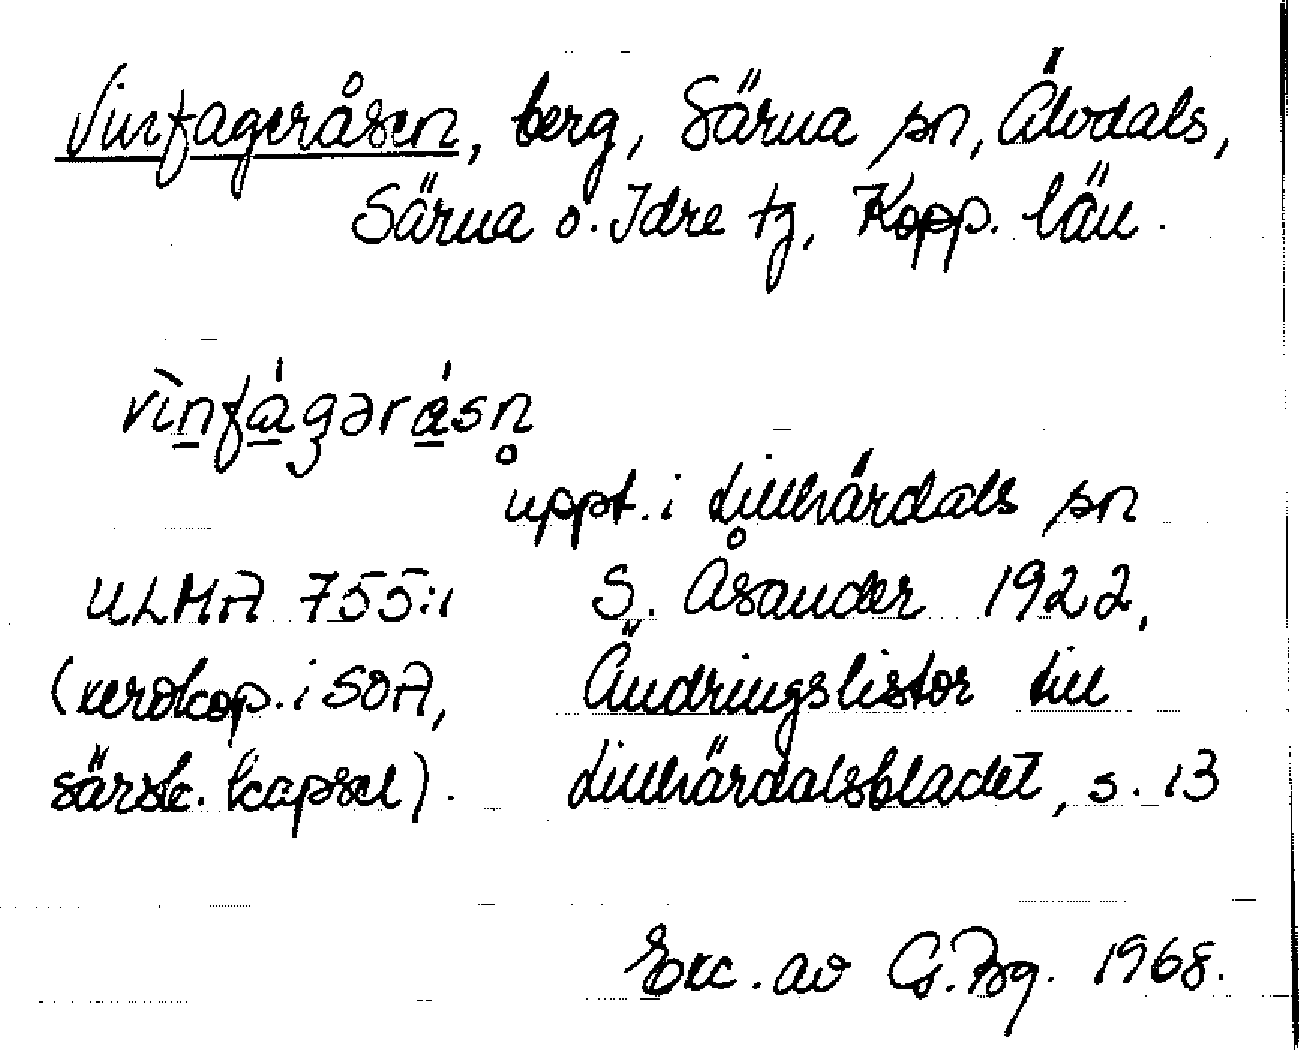 Vinfageråsen, berg, Särna sn, Älvdals,
Särna o. Idre tg, Kopp. län.
vìnfágərásn̥
uppt. i Lillhärdals sn
ULMA 755:1 S. Åsander 1922,
(xerokop. i SOA, Ändringslistor till
särsk. kapsel). Lillhärdalsbladet, s. 13
Exc. av G. Bg. 1968.